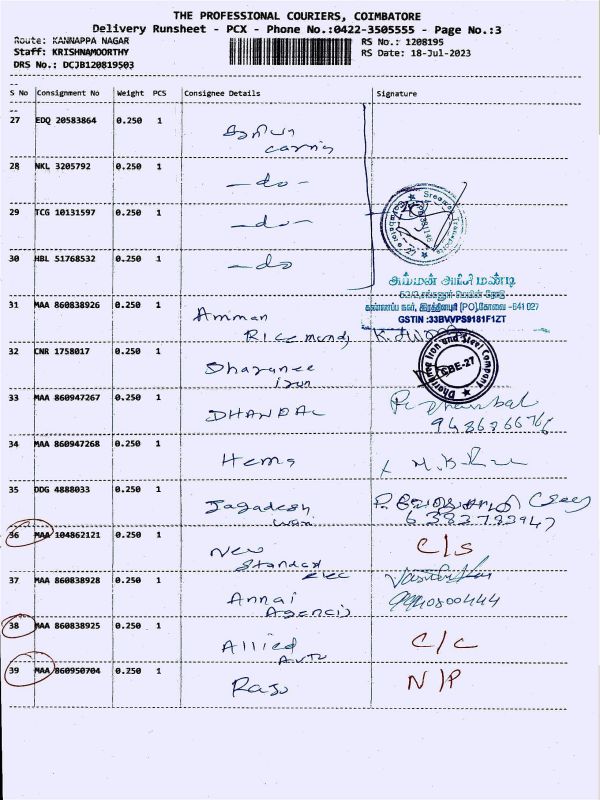 THE PROFESSIONAL COURIERS, COIMBATORE
Delivery Runsheet - PCX - Phone No.:0422-3505555 - Page No.:3
Route: KANNAPPA NAGAR RS No.: 1208195
Staff: KRISHNAMOORTHY RS Date: 18-Jul-2023
DRS No.: DCJB120819503
S No Consignment No Weight PCS Consignee Details Signature
27 EDQ 20583864 0.250 1
28 NKL 3205792 0.250 1 -do-
29 TCG 10131597 0.250 1 -do-
30 HBL 51768532 0.250 1 -do
அம்மன் அரிசி மண்டி
GSTIN :33BVVPS9181F1ZT
31 MAA 860838926 0.250 1 Amman
Rice mandy
32 CNR 1758017 0.250 1 Dharanee
iron
Dharanee Iron and Steel Company
CBE-27
33 MAA 860947267 0.250 1 DHANPAL
9486866766
34 MAA 860947268 0.250 1 Hema
35 DDG 4888033 0.250 1 Jagadesh
6383783947
36 MAA 104862121 0.250 1 New C/S
Standard
Elec
37 MAA 860838928 0.250 1 Annai
Agencis 9940800444
38 MAA 860838925 0.250 1 Allied C/C
Auto
39 MAA 860950704 0.250 1 Raju N/P